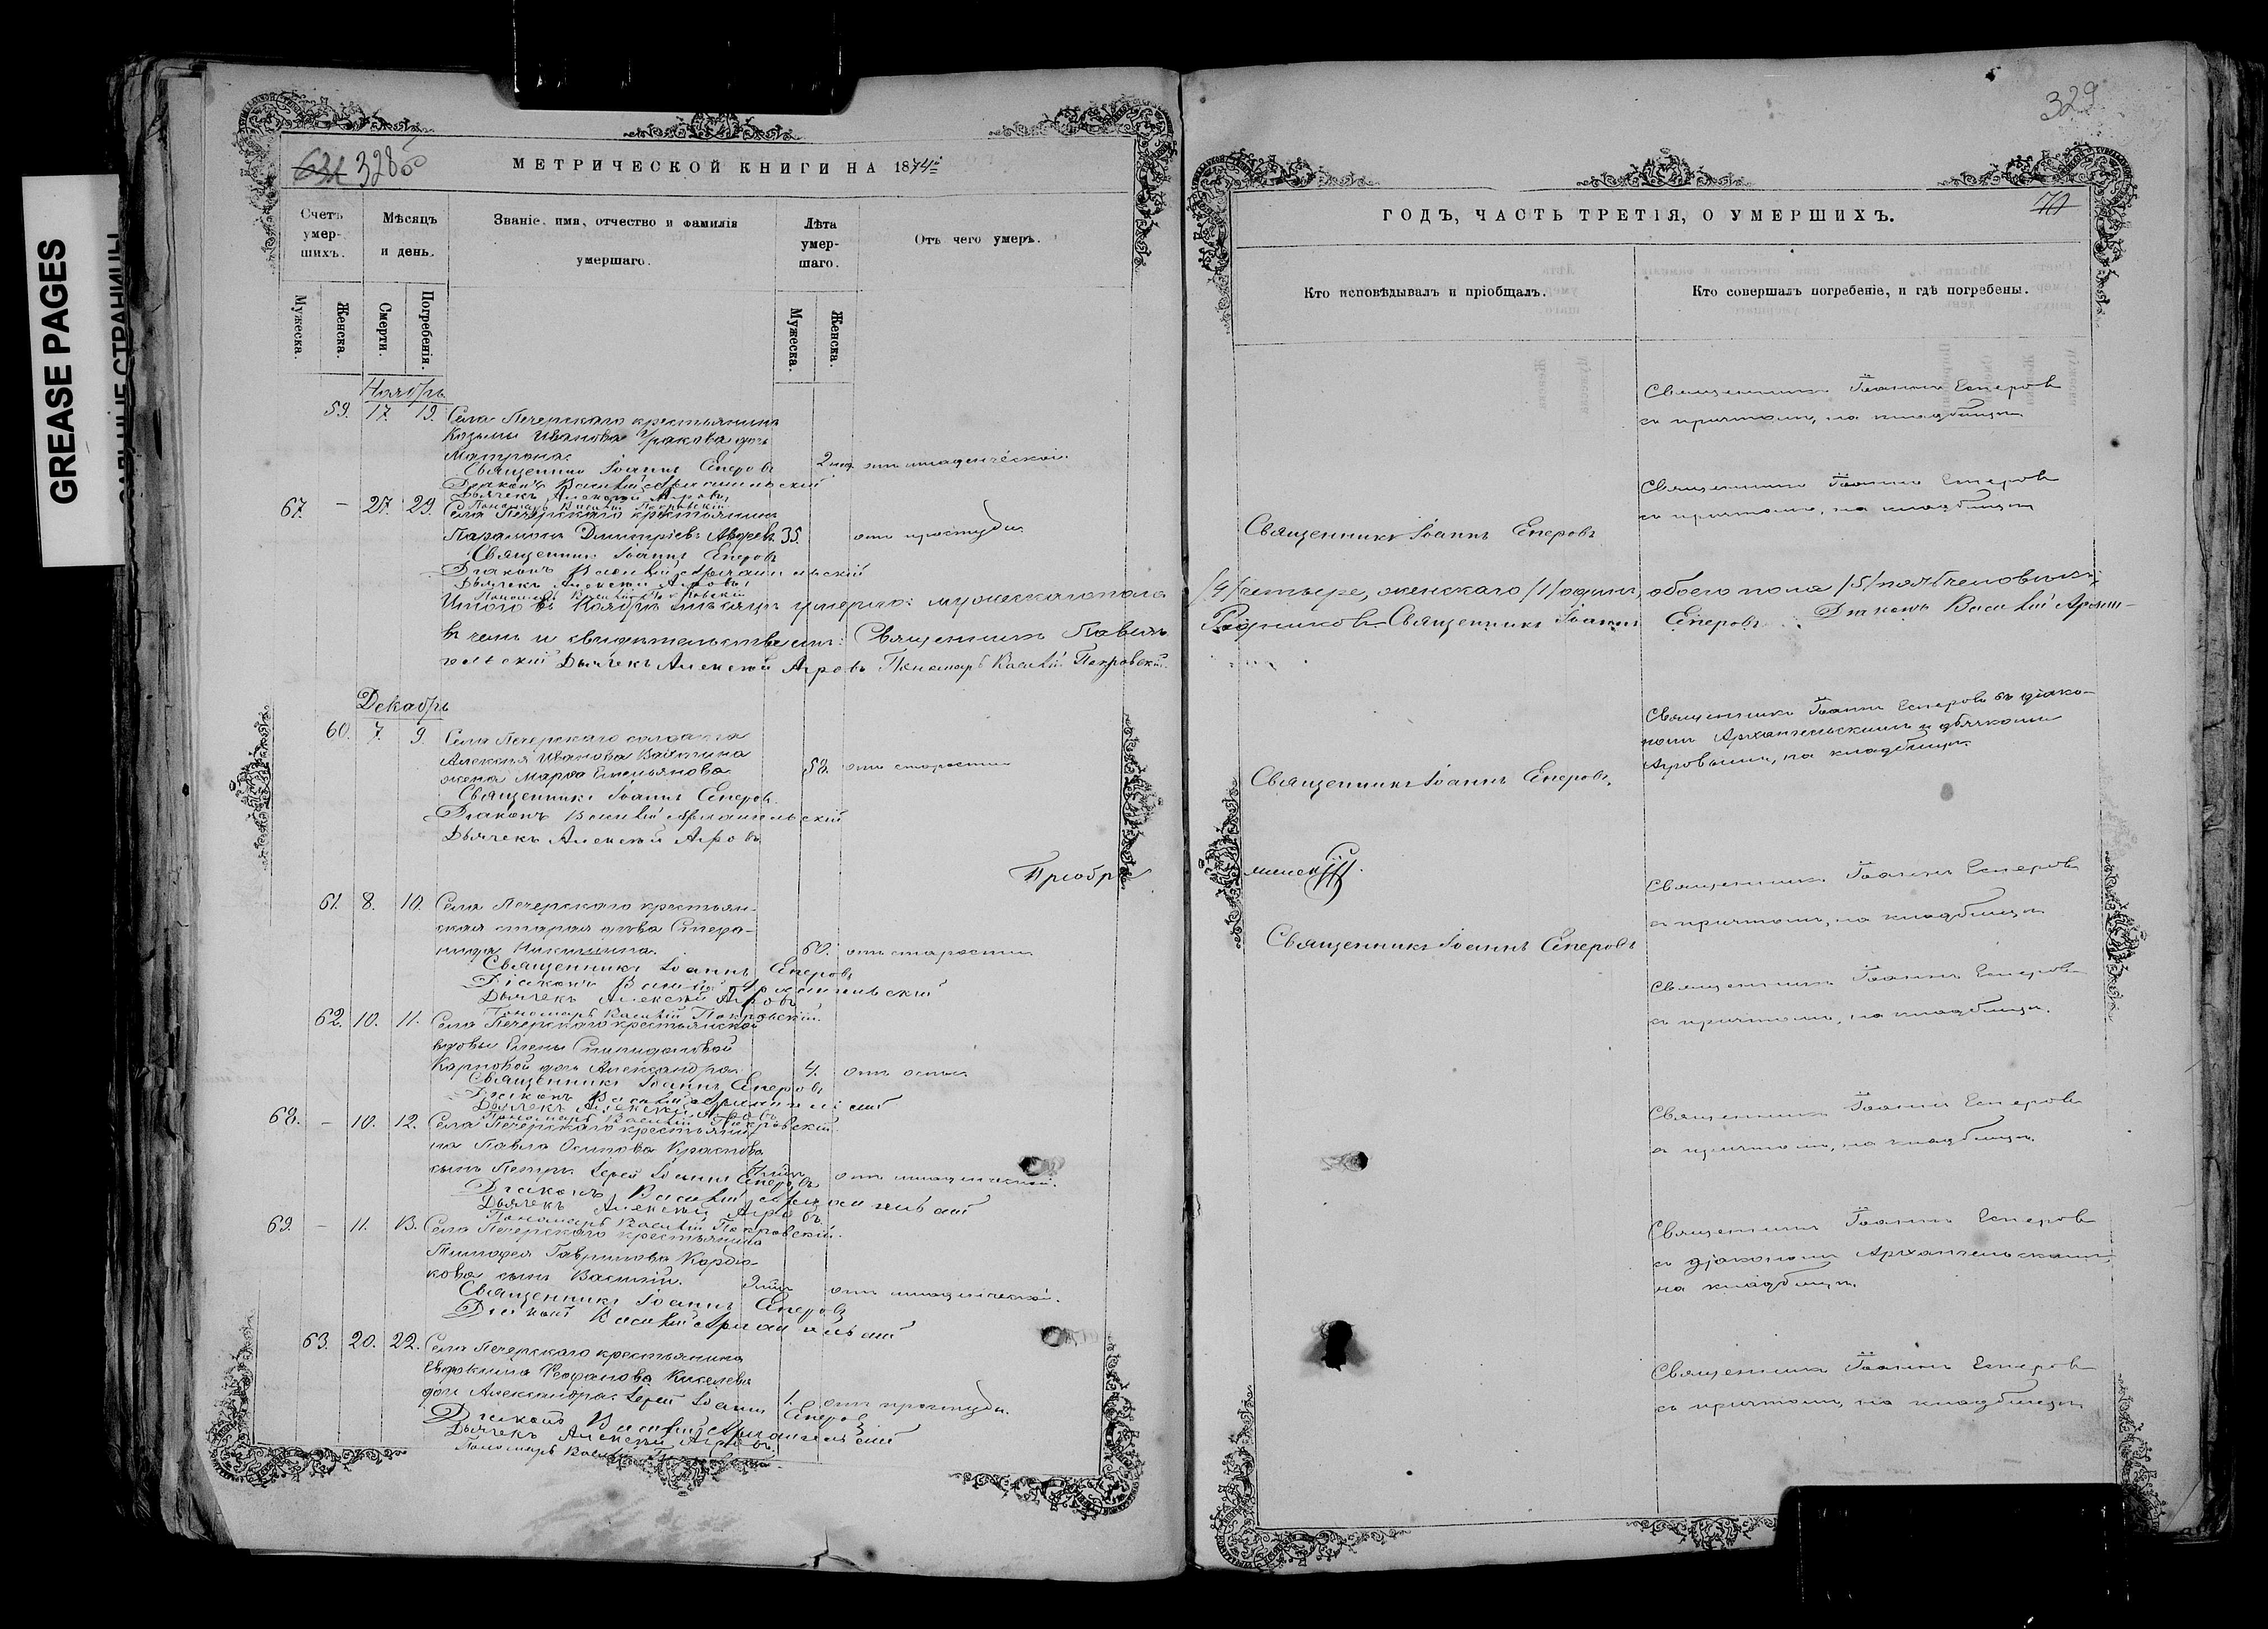 GREASE PAGES
328 об
МЕТРИЧЕСКОЙ КНИГИ НА 1874й
Счетъ умер-шихъ.
Мѣсяцъ и день.
Званіе, имя, отчество и фамилія умершаго.
Лѣта умер-шаго.
Отъ чего умеръ.
Мужеска.
Женска.
Смерти.
Погребенія.
Мужеска.
Женска.
Ноябрь
59. 17. 19. Села Печерскаго крестьянина
Козьмы Иванова дочь
Матрона. 2 отъ младенческой.
Священникъ Іоаннъ Еперовъ
Діаконъ Василій Архангельскій
Дьячекъ Алексѣй Агровъ
Пономарь Василій Покровскій
67. — 27. 29. Села Печерскаго крестьянинъ
Парамонъ Димитріевъ 35. отъ простуды
Священникъ Іоаннъ Еперовъ
Діаконъ Василій Архангельскій
Дьячекъ Алексѣй Агровъ
Пономарь Василій Покровскій
Итого въ Ноябрѣ мѣсяцѣ умерло: мужескаго пола
въ чемъ и свидѣтельствуемъ: Священникъ Павелъ
гельскій Дьячекъ Алексѣй Агровъ Пономарь Василій Покровскій.
Декабрь
60. 7. 9. Села Печерскаго солдата
Алексѣя Иванова
жена Марѳа Емельянова 58. отъ старости
Священникъ Іоаннъ Еперовъ
Діаконъ Василій Архангельскій
Дьячекъ Алексѣй Агровъ
Преобра
61. 8. 10. Села Печерскаго крестьян-
ская старая дѣва Степа-
нида Никитина. 60. отъ старости
Священникъ Іоаннъ Еперовъ
Діаконъ Василій Архангельскій
Дьячекъ Алексѣй Агровъ
Пономарь Василій Покровскій.
62. 10. 11. Села Печерскаго крестьянской
вдовы Елены Спиридоновой
Карповой дочь Александра. 4. отъ оспы
Священникъ Іоаннъ Еперовъ
Діаконъ Василій Архангельскій
Дьячекъ Алексѣй Агровъ
Пономарь Василій Покровскій.
68. — 10. 12. Села Печерскаго крестьяни-
на Павла Осипова Краснова
сынъ Петръ. отъ младенческой.
Іерей Іоаннъ Еперовъ
Діаконъ Василій Архангельскій
Дьячекъ Алексѣй Агровъ.
Пономарь Василій Покровскій.
69. — 11. 13. Села Печерскаго крестьянина
Тимофея Гаврилова Корда-
кова сынъ Василій. отъ младенческой.
Священникъ Іоаннъ Еперовъ
Діаконъ Василій Архангельскій
63. 20. 22. Села Печерскаго крестьянина
Евдокима Киселева
дочь Александра. 1. отъ простуды.
Іерей Іоаннъ Еперовъ
Діаконъ Василій Архангельскій
Дьячекъ Алексѣй Агровъ.
Пономарь Василій
329
70
ГОДЪ, ЧАСТЬ ТРЕТІЯ, О УМЕРШИХЪ.
Кто исповѣдывалъ и пріобщалъ.
Кто совершалъ погребеніе, и гдѣ погребены.
Священникъ Іоаннъ Еперовъ
съ причтомъ, на кладбищѣ
Священникъ Іоаннъ Еперовъ
съ причтомъ, на кладбищѣ
Священникъ Іоаннъ Еперовъ
/4/ четыре, женскаго /1/ одинъ, обоего пола /5/ пять человѣкъ;
Родниковъ Священникъ Іоаннъ Еперовъ Діаконъ ВасилійАрхан-
Священникъ Іоаннъ Еперовъ съ діако-
номъ Архангельскимъ и дьячкомъ
Агровымъ, на кладбищѣ
Священникъ Іоаннъ Еперовъ.
Священникъ Іоаннъ Еперовъ
съ причтомъ, на кладбищѣ
Священникъ Іоаннъ Еперовъ
Священникъ Іоаннъ Еперовъ
съ причтомъ, на кладбищѣ.
Священникъ Іоаннъ Еперовъ
съ причтомъ, на кладбищѣ.
Священникъ Іоаннъ Еперовъ
съ діакономъ Архангельскимъ,
на кладбищѣ.
Священникъ Іоаннъ Еперовъ
съ причтомъ, на кладбищѣ